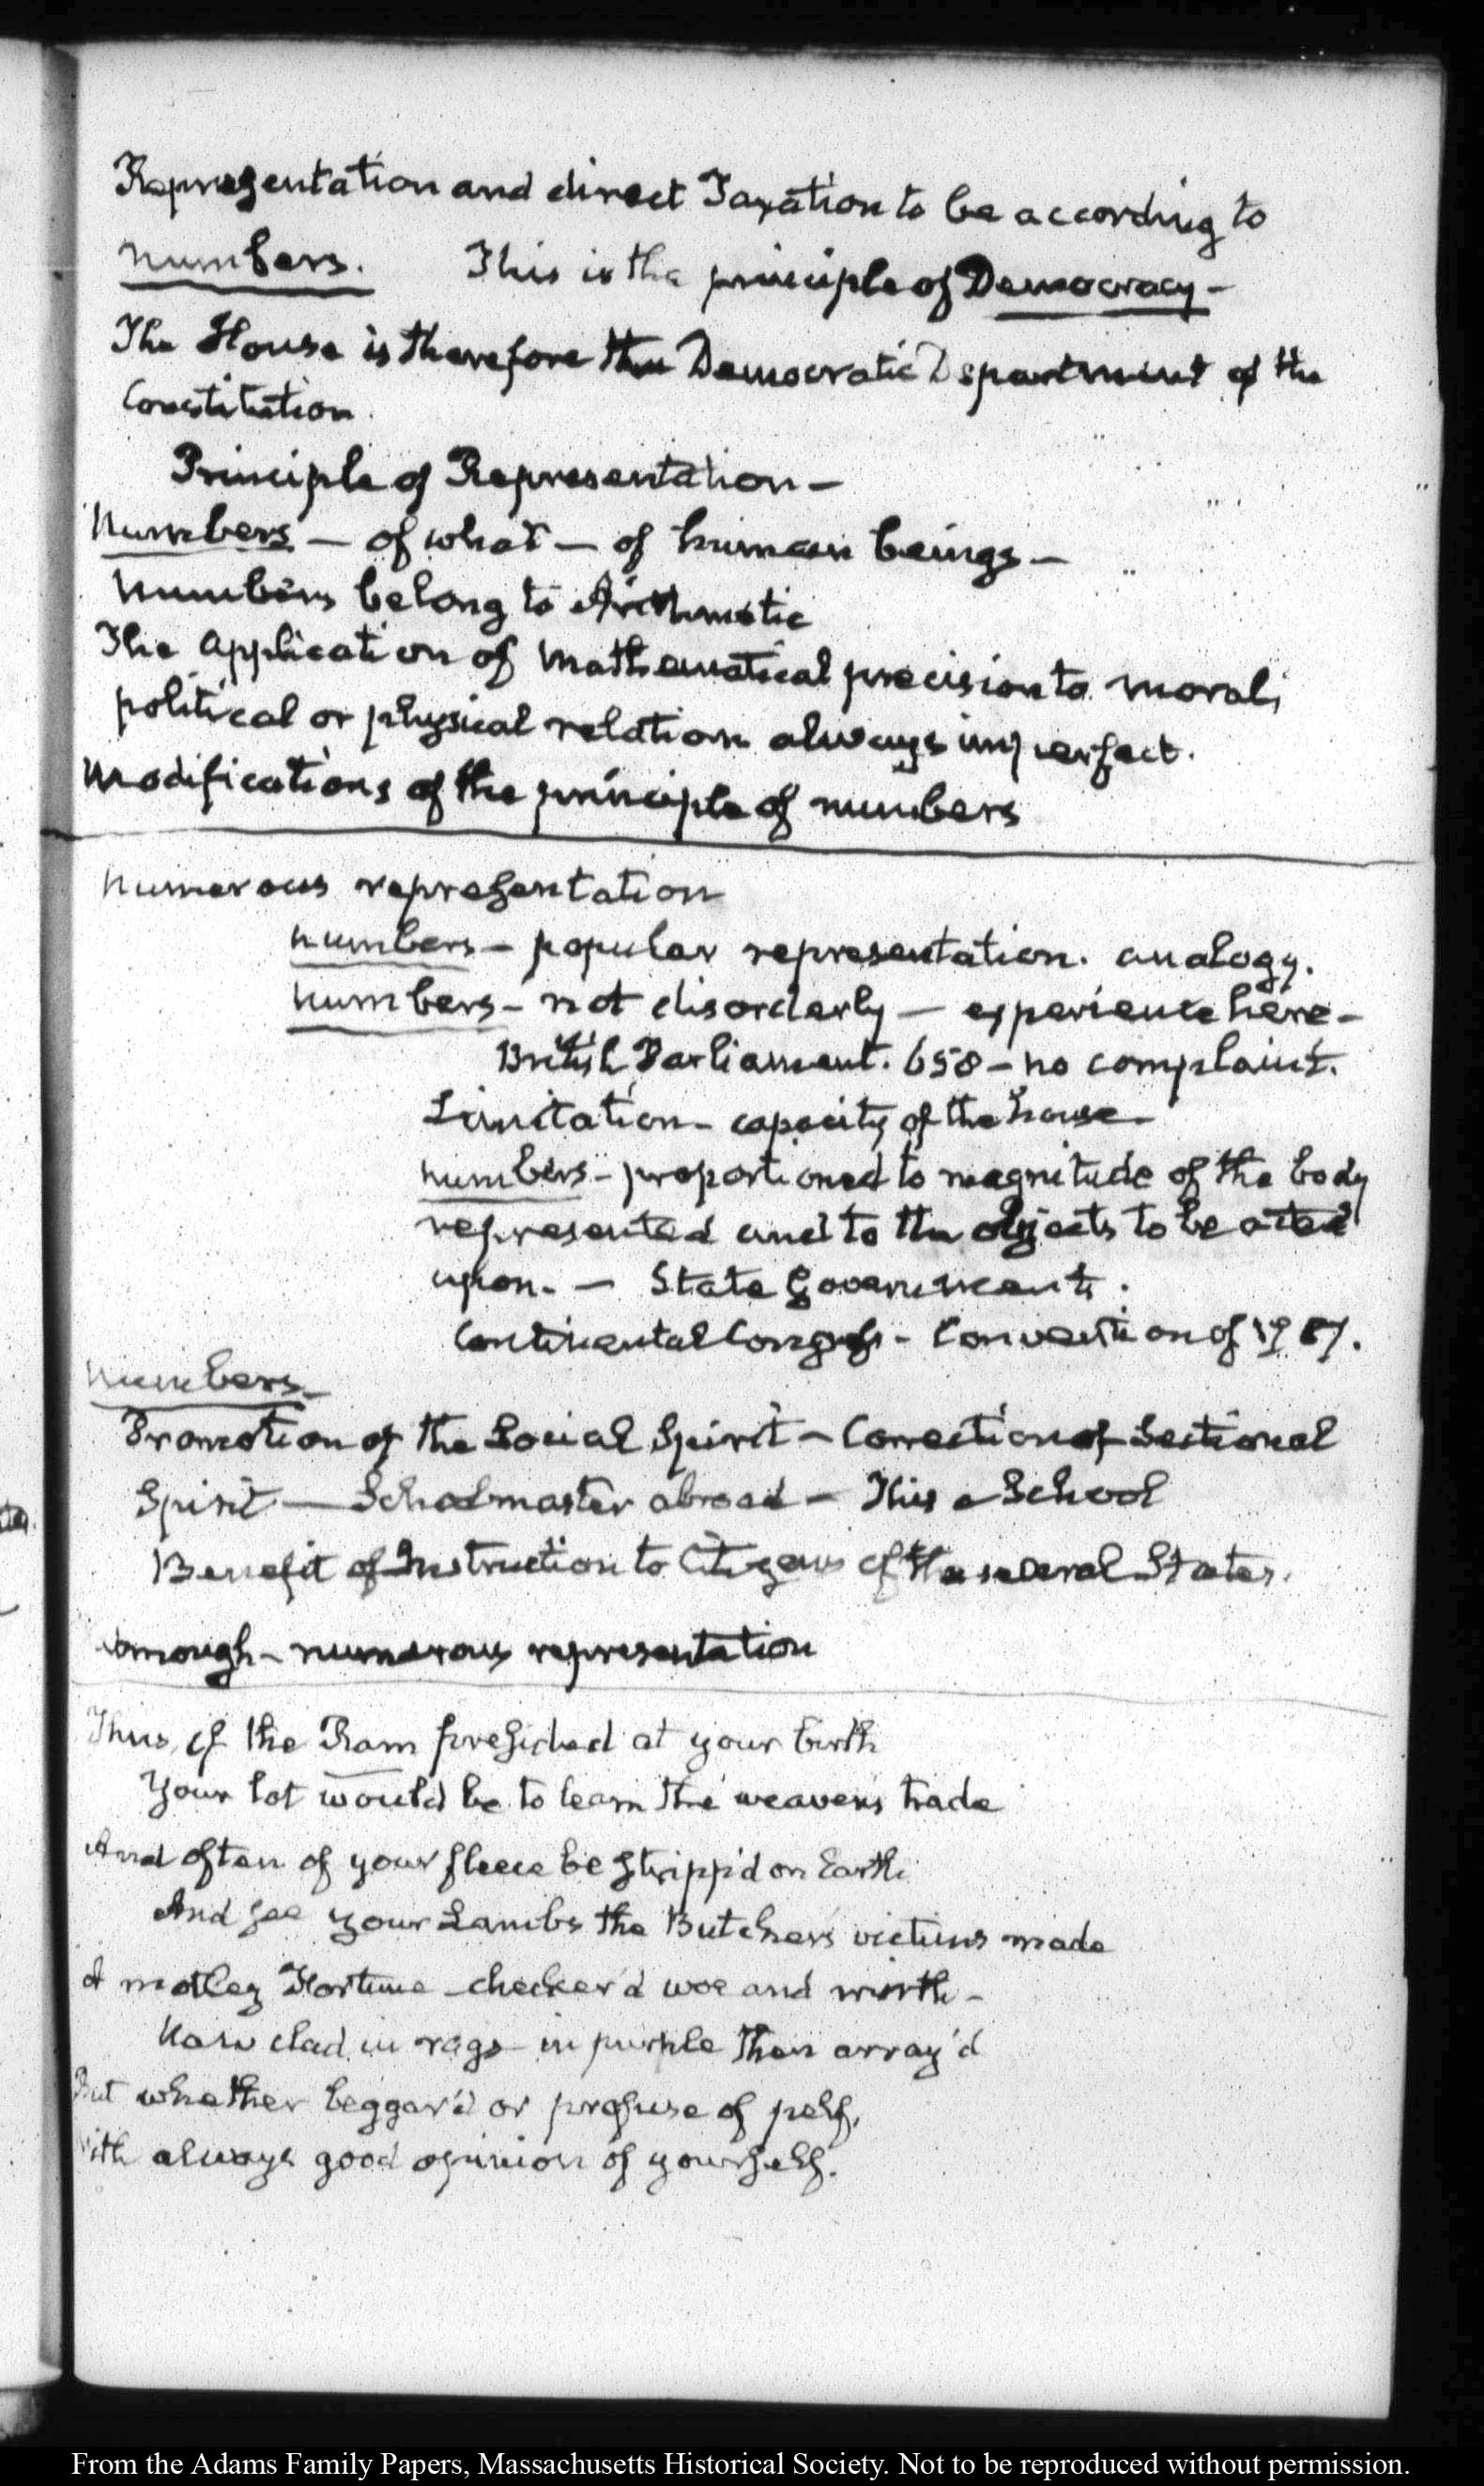 Representation and direct Taxation to be according to
numbers. This is the principle of Democracy—
The House is therefore the Democratic Department of the
Constitution.
Principle of Representation—
Numbers — of what — of human beings—
Numbers belong to Arithmetic
The application of Mathematical precision to moral,
political or physical relation always imperfect.
Modifications of the principle of numbers
Numerous representation
numbers — popular representation. analogy.
numbers — not disorderly — experience here—
British Parliament. 658 — no complaint.
Limitation — capacity of the house—
numbers — proportioned to magnitude of the body
represented and to the objects to be acted
upon. — State Governments.
Continental Congress — Convention of 1787.
Numbers—
Promotion of the Social Spirit — Correction of Sectional
Spirit — Schoolmaster abroad — This a School
Benefit of Instruction to Citizens of the several States.
numerous representation
Thus, if the Ram presided at your birth
Your lot would be to learn the weavers trade
And often of your fleece be stripp'd on Earth
And see your Lambs the Butchers victims made
A motley Fortune checker'd woe and mirth—
Now clad in rags in purple then array'd
But whether beggar'd or profuse of pelf,
With always good opinion of yourself.
From the Adams Family Papers, Massachusetts Historical Society. Not to be reproduced without permission.